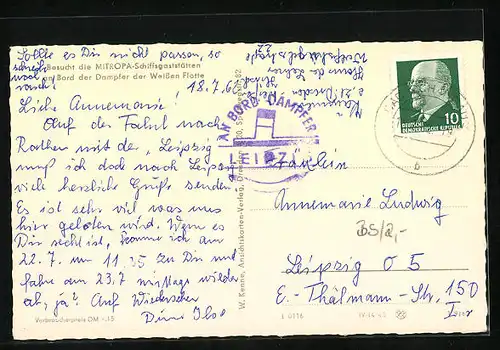 Sollte es Dir nicht passen, so
schreibe mir
Besucht die MITROPA-Schiffsgaststätten
an Bord der Dampfer der Weißen Flotte
18.7.62
Liebe Annemarie!
Auf der Fahrt nach
Rathen mit der "Leipzig
muß ich doch nach Leipzig
viele herzliche Grüße senden.
Es ist sehr viel was uns
hier geboten wird. Wenn es
Dir recht ist, komme ich am
22.7. um 11.35 zu Dir und
fahre am 23.7 mittags wieder
ab, ja? Auf Wiedersehen
Deine Ilse
Verbraucherpreis DM -.15
W. Kenne, Ansichtskarten-Verlag
AN BORD DAMPFER
LEIPZIG
DEUTSCHE
DEMOKRATISCHE REPUBLIK
10
b
Fräulein
Annemarie Ludwig
BS/2,-
Leipzig O 5
E.-Thälmann-Str. 150